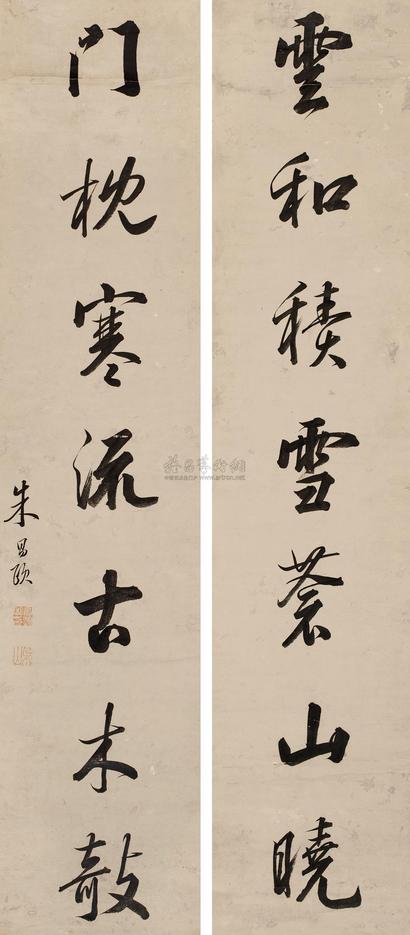 雲和積雪蒼山曉
門枕寒流古木敧
朱昌頤
雅昌藝術網
www.artron.net